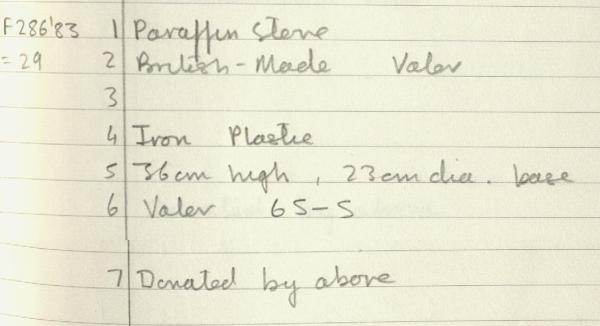 F286'83 1 Paraffin Stove
= 29 2 British-Made Valor
3
4 Iron Plastic
5 36cm high, 23cm dia. base
6 Valor 65-S
7 Donated by above